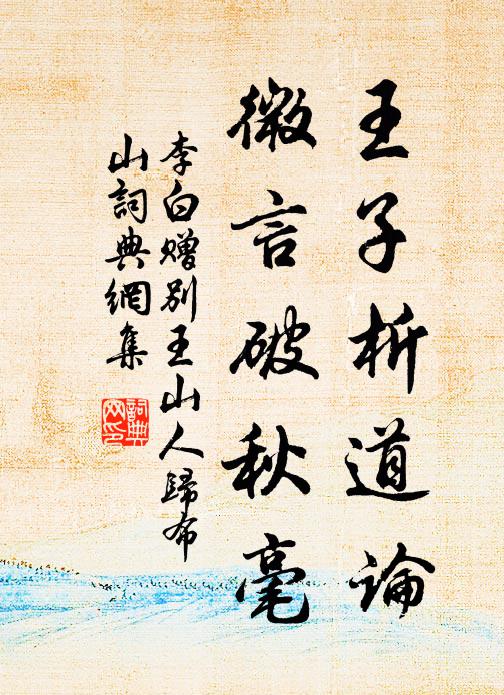 王子析道論
微言破秋毫
李白赠别王山人歸布
山詞典網集
詞典
网印